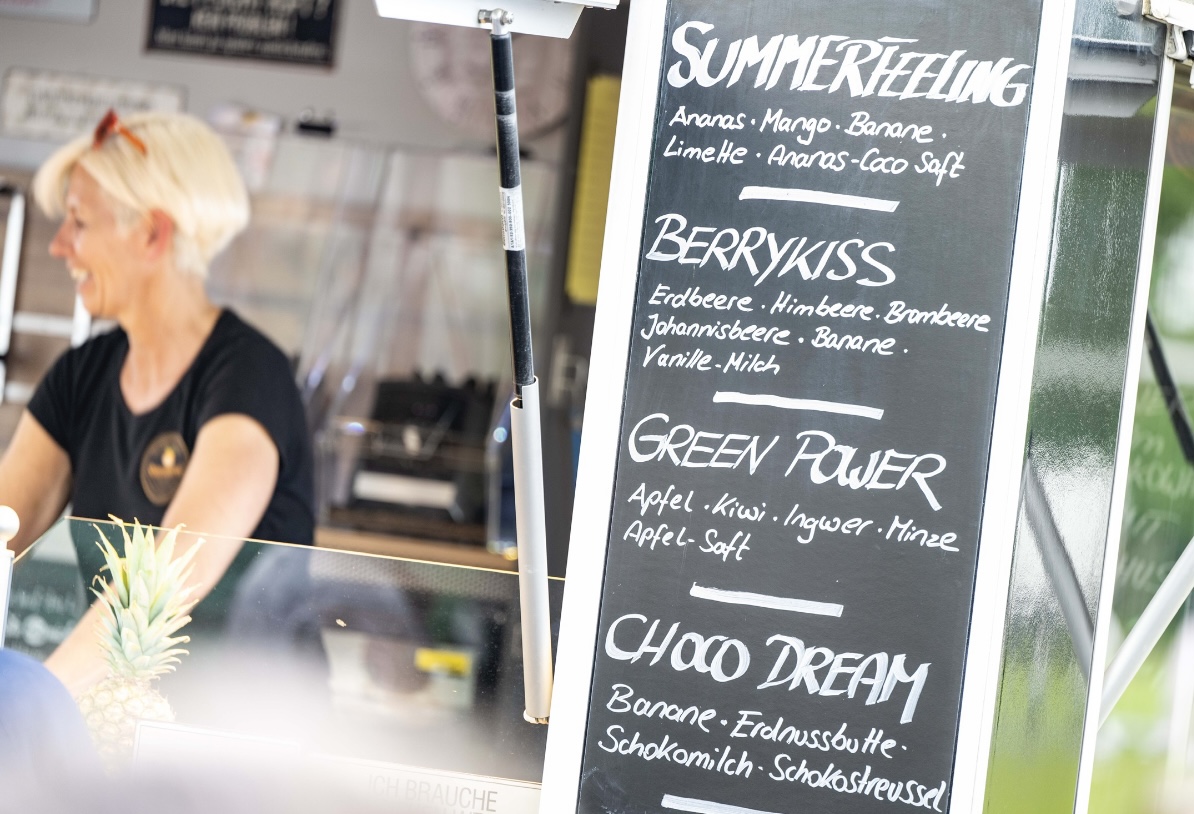 SUMMERFEELING
Ananas · Mango · Banane ·
Limette · Ananas-Coco Saft
BERRYKISS
Erdbeere · Himbeere · Brombeere
Johannisbeere · Banane ·
Vanille-Milch
GREEN POWER
Apfel · Kiwi · Ingwer · Minze
Apfel-Saft
CHOCO DREAM
Banane · Erdnussbutte ·
Schokomilch · Schokostreussel
ICH BRAUCHE